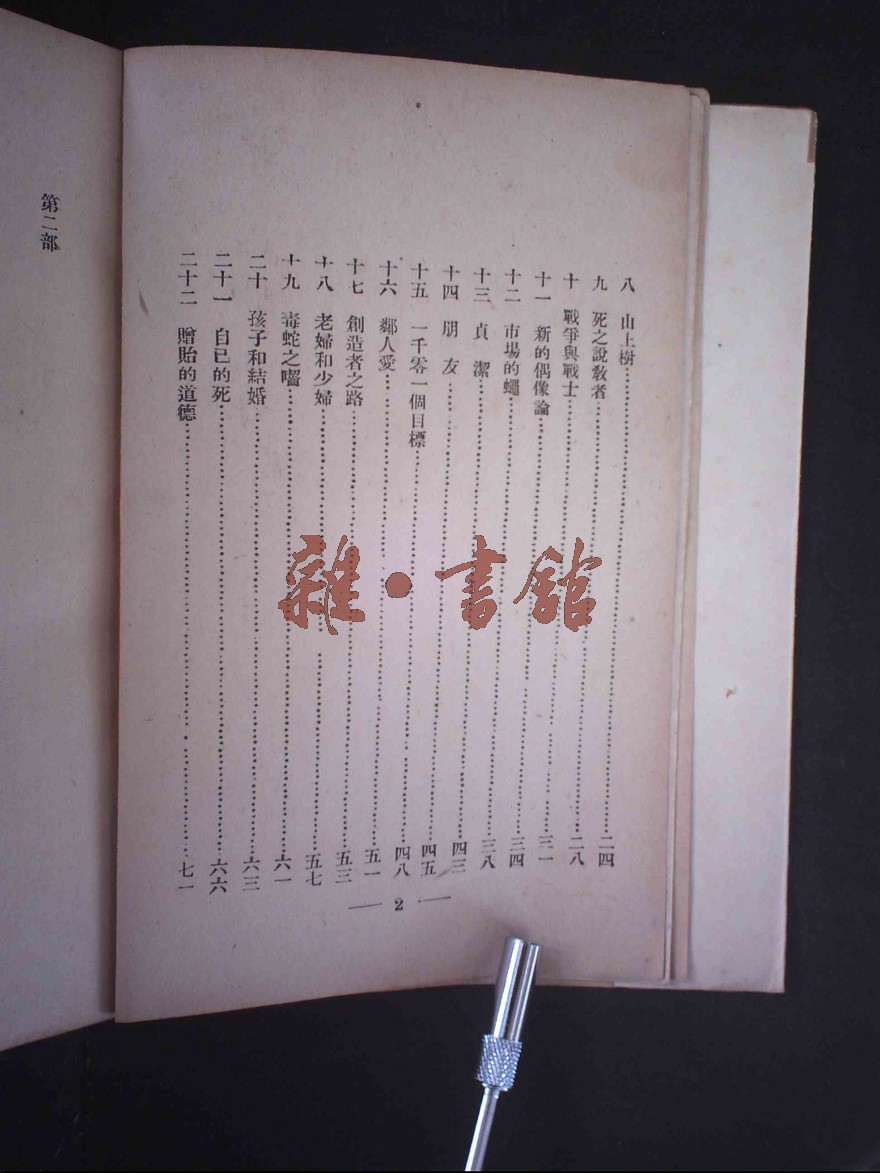 八 山上樹……二四
九 死之說教者……二八
十 戰爭與戰士……三一
十一 新的偶像論……三四
十二 市場的蠅……三八
十三 貞潔……四三
十四 朋友……四五
十五 一千零一個目標……四八
十六 鄰人愛……五一
十七 創造者之路……五三
十八 老婦和少婦……五七
十九 毒蛇之嚙……六一
二十 孩子和結婚……六三
二十一 自己的死……六六
二十二 贈貽的道德……七一
— 2 —
第二部
雜·書館